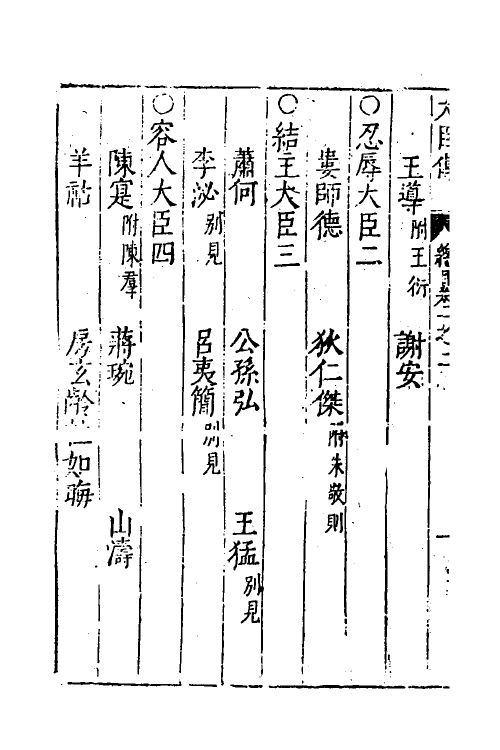 大臣傳 總目卷一之二 一
王導附王衍 謝安
〇忍辱大臣二
婁師德 狄仁傑附朱敬則
〇結主大臣三
蕭何 公孫弘 王猛別見
李泌別見 呂夷簡別見
〇容人大臣四
陳寔附陳羣 蔣琬 山濤
羊祜 房玄齡 如晦